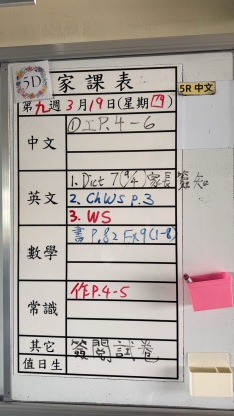 5D
家課表
5R 中文
第九週3月19日(星期四)
中文
① 工 P.4-6
英文
1. Dict 7 (9/4) 家長需知
2. Ch WS P.3
3. WS
數學
書 P.82 Ex9(1-8)
常識
作 P.4-5
其它
簽閱試卷
值日生